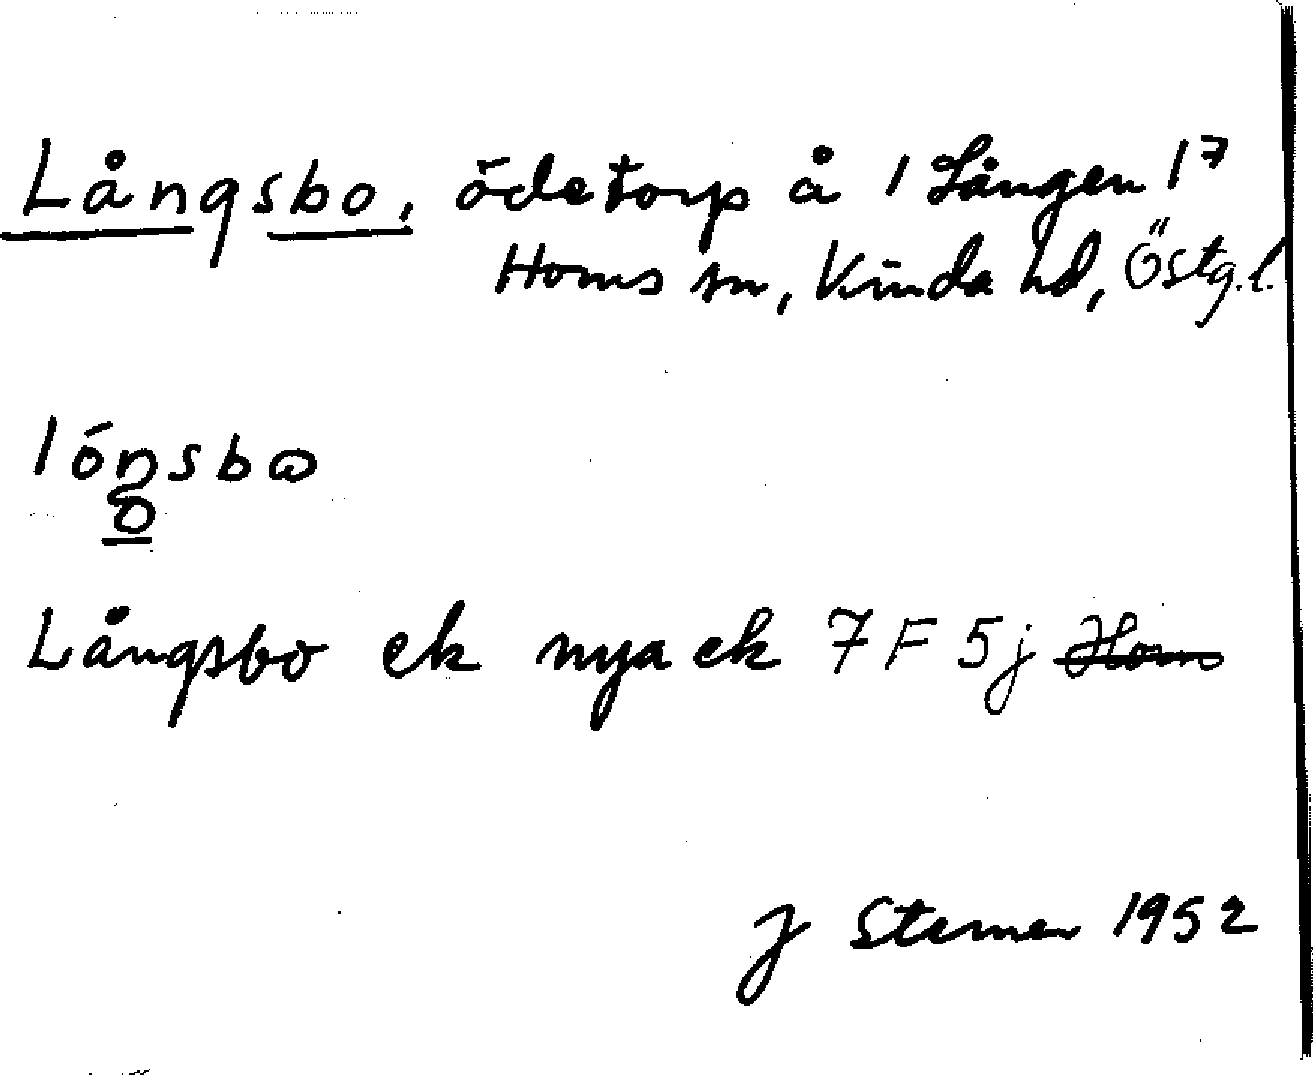 Långsbo, ödetorp å 1 Lången 1⁷
Horns sn, Kinda hd, Östg.l.
lóŋsbω
o
Långsbo ek nya ek 7 F 5j Horn
J Sterner 1952